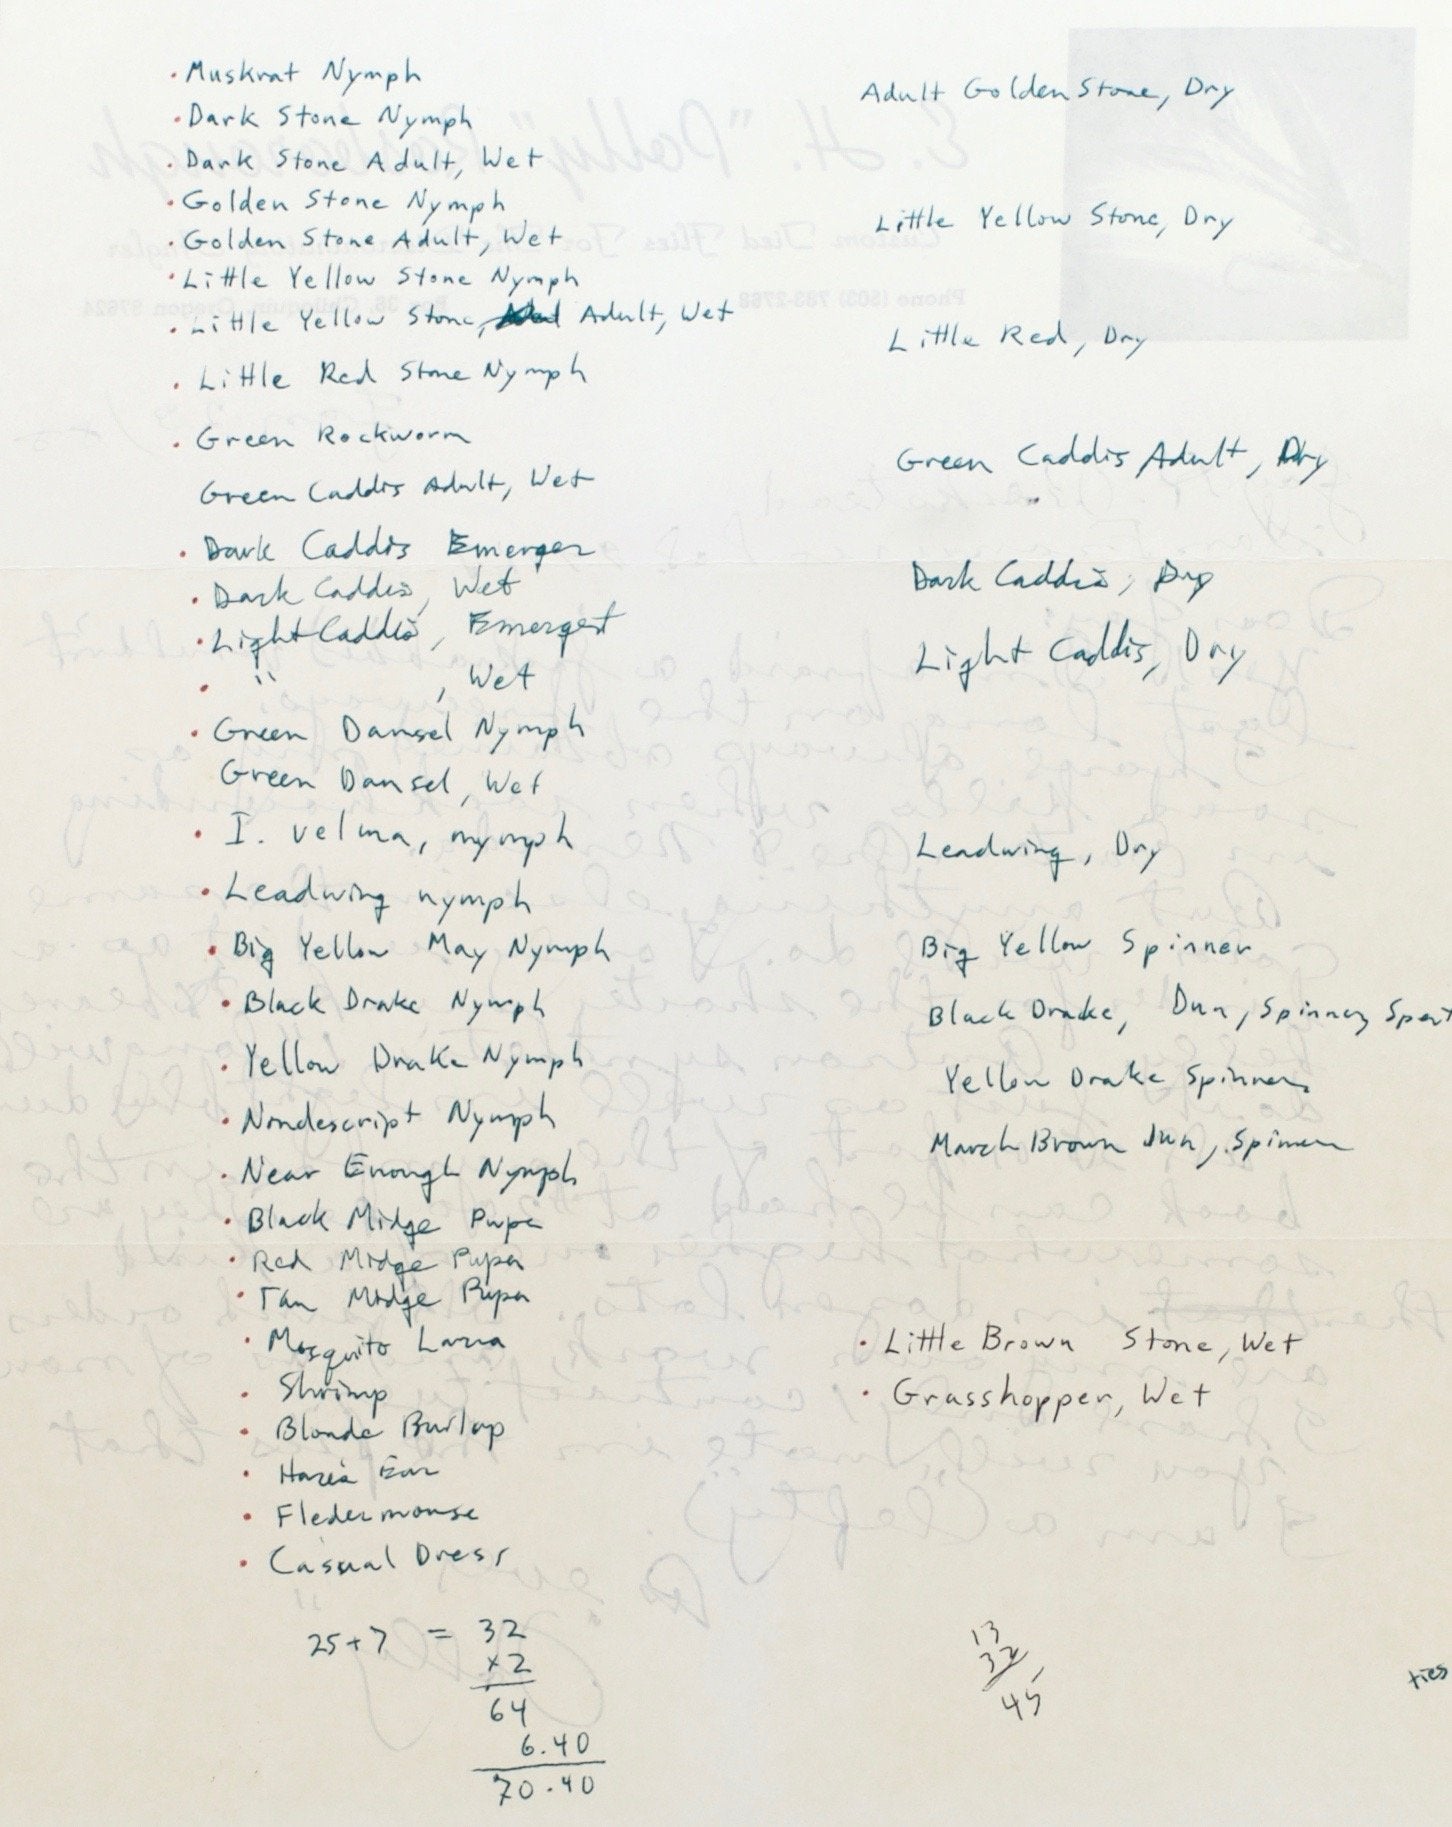 Muskrat Nymph
Dark Stone Nymph
Dark Stone Adult, Wet
Golden Stone Nymph
Golden Stone Adult, Wet
Little Yellow Stone Nymph
Little Yellow Stone, Adult, Wet
Little Red Stone Nymph
Green Rockworm
Green Caddis Adult, Wet
Dark Caddis Emerger
Dark Caddis, Wet
Light Caddis, Emergent
" , Wet
Green Damsel Nymph
Green Damsel, Wet
I. velma, nymph
Leadwing nymph
Big Yellow May Nymph
Black Drake Nymph
Yellow Drake Nymph
Nondescript Nymph
Near Enough Nymph
Black Midge Pupa
Red Midge Pupa
Tan Midge Pupa
Mosquito Larva
Shrimp
Blonde Burlap
Hare's Ear
Fledermouse
Casual Dress
25+7 = 32
x2
64
6.40
70.40
Adult Golden Stone, Dry
Little Yellow Stone, Dry
Little Red, Dry
Green Caddis Adult, Dry
Dark Caddis, Dry
Light Caddis, Dry
Leadwing, Dry
Big Yellow Spinner
Black Drake, Dun, Spinner, Spent
Yellow Drake Spinner
March Brown Dun, Spinner
Little Brown Stone, Wet
Grasshopper, Wet
13
32
45
ties